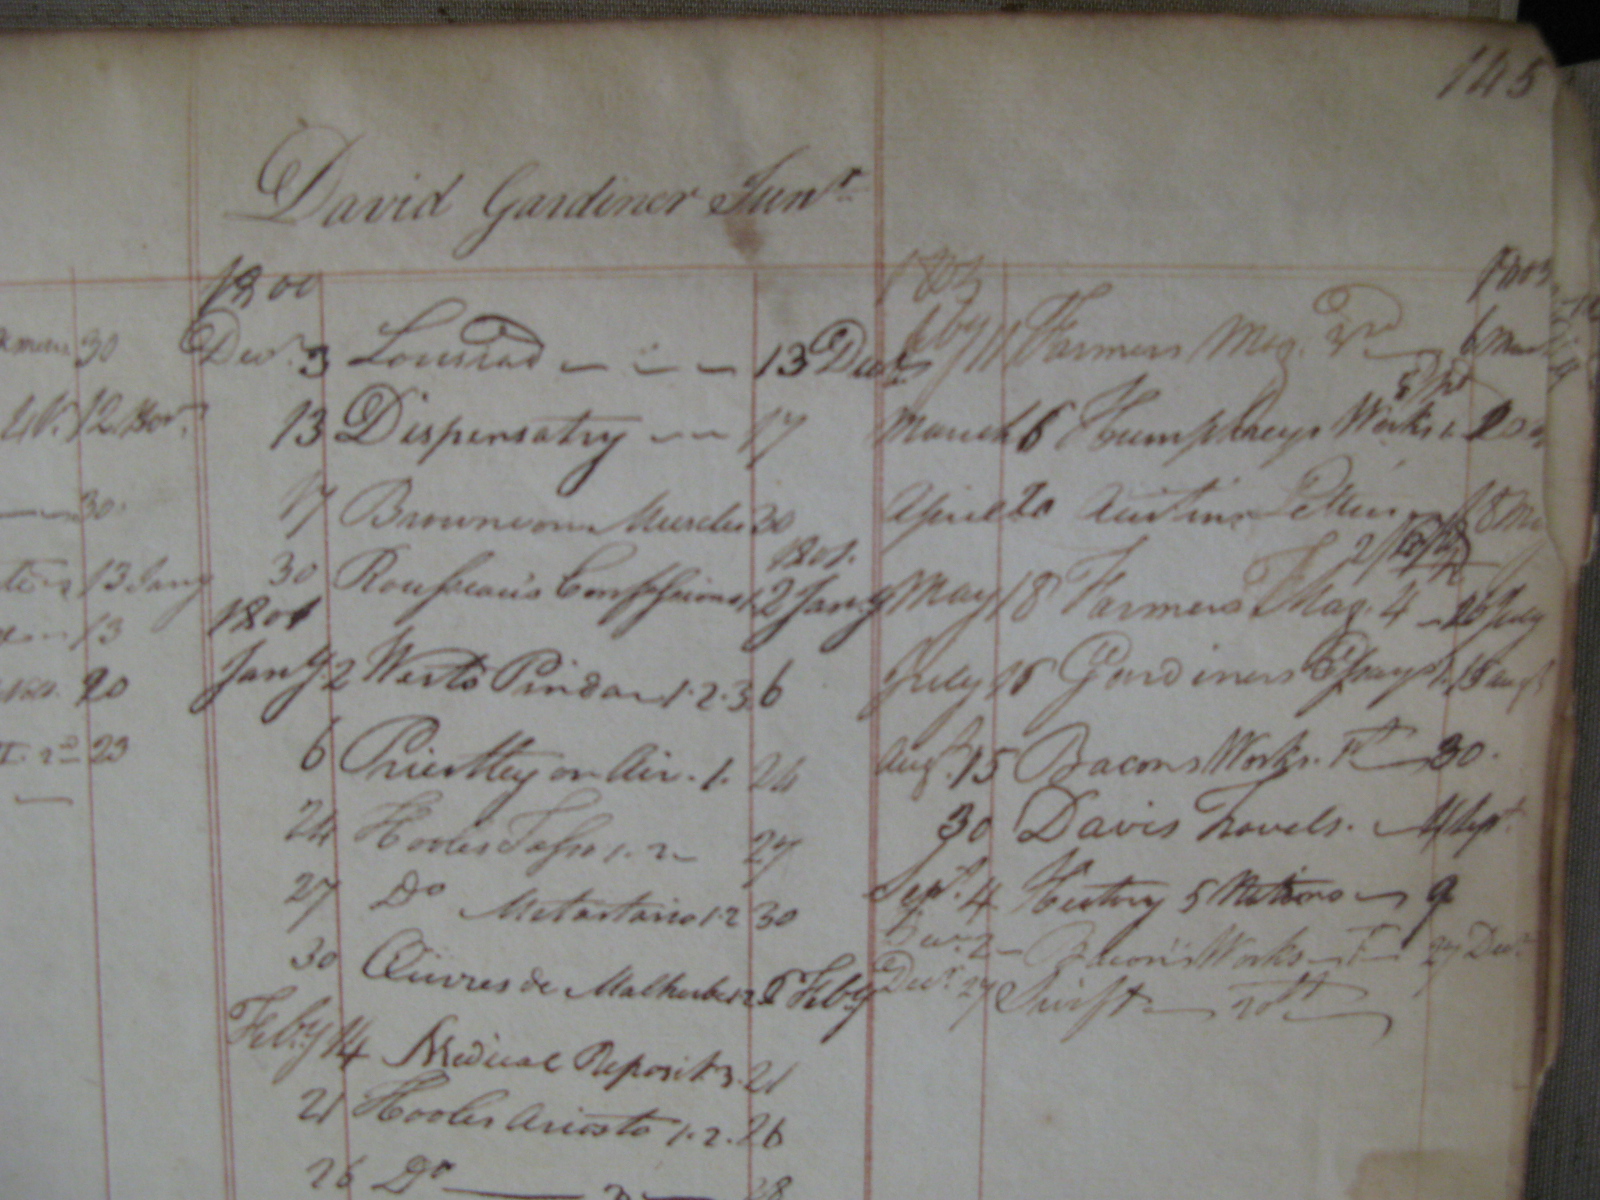 145
David Gardiner Junr
30
12 Novr
30
13 Jany
13
20
23
1800
Decr. 3 Lousiad 13 Decr
13 Dispensatory 17
17 Brown on Muscles 30
1801.
30 Rousseau's Confessions 1. 2 Jany
1801
Jany 2 Wests Pindar 1.2.3 6
6 Priestley on Air. 1. 24
24 Hooles Tasso 1. 2 27
27 Do Metastasio 1.2 30
30 Œuvres de Malherbe 1.2 Feby
Feby 14 Medical Reposit. 3. 21
21 Hooles Ariosto 1. 2. 26
26 Do 28
1803
Feby 11 Farmers Mag. 3d 6 Mar
March 6 Humphreys Works 20
April 20 Austins Letters 18 Ma
May 18 Farmers Mag. 4 26 July
July 26 Gardiners Essays 1. 15 Aug
Augt. 15 Bacons Works. 1st 30.
30 Davis Travels. 4 Sept.
Sept. 4 History 5 Nations 9
Decr. 2 Bacon's Works 1st 27 Decr
Decr. 27 Swift